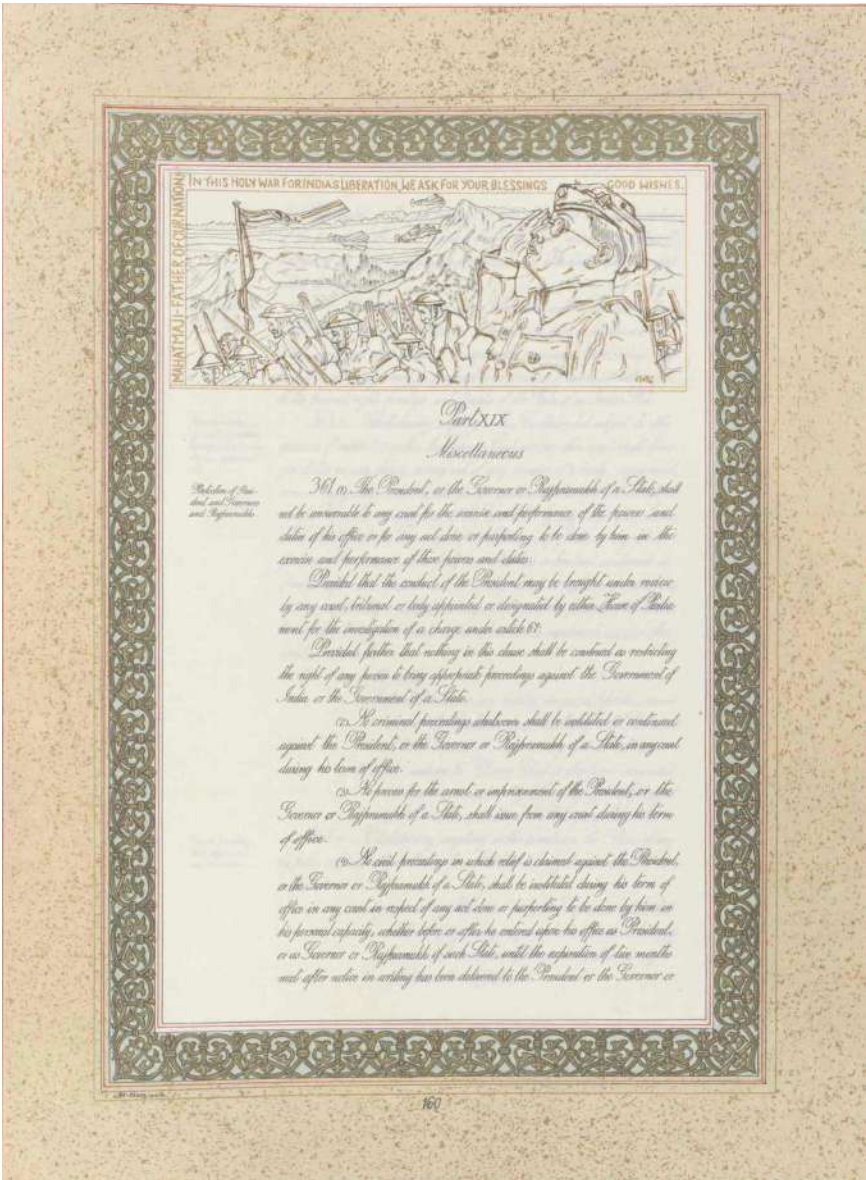 IN THIS HOLY WAR FOR INDIAS LIBERATION, WE ASK FOR YOUR BLESSINGS GOOD WISHES.
MAHATMAJI - FATHER OF OUR NATION
Part XIX
Miscellaneous
Protection of Presi-
dent and Governors
and Rajpramukhs
361 (1) The President, or the Governor or Rajpramukh of a State, shall
not be answerable to any court for the exercise and performance of the powers and
duties of his office or for any act done or purporting to be done by him in the
exercise and performance of those powers and duties:
Provided that the conduct of the President may be brought under review
by any court, tribunal or body appointed or designated by either House of Parlia-
ment for the investigation of a charge under article 61:
Provided further that nothing in this clause shall be construed as restricting
the right of any person to bring appropriate proceedings against the Government of
India or the Government of a State.
(2) No criminal proceedings whatsoever shall be instituted or continued
against the President, or the Governor or Rajpramukh of a State, in any court
during his term of office.
(3) No process for the arrest or imprisonment of the President, or the
Governor or Rajpramukh of a State, shall issue from any court during his term
of office.
(4) No civil proceedings in which relief is claimed against the President,
or the Governor or Rajpramukh of a State, shall be instituted during his term of
office in any court in respect of any act done or purporting to be done by him in
his personal capacity, whether before or after he entered upon his office as President,
or as Governor or Rajpramukh of such State, until the expiration of two months
next after notice in writing has been delivered to the President or the Governor or
160